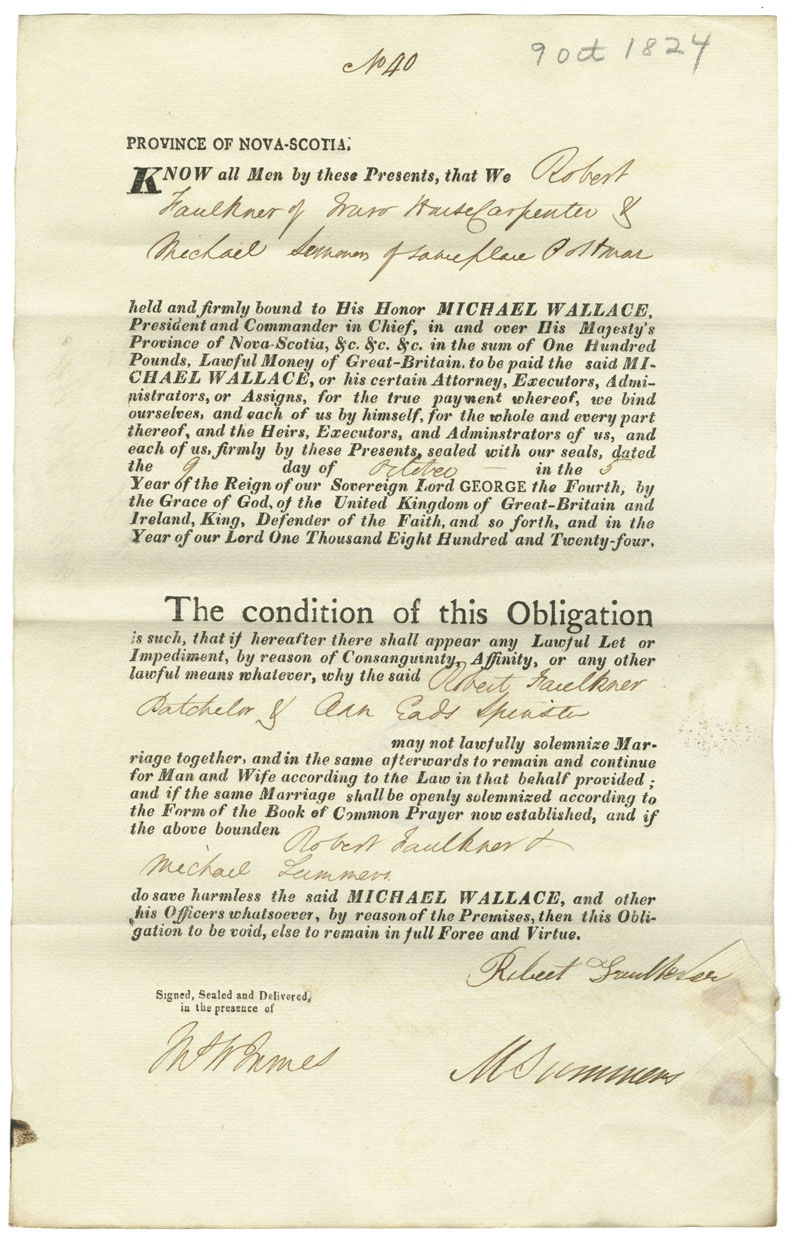 No 40
9 Oct 1824
PROVINCE OF NOVA-SCOTIA.
KNOW all Men by these Presents, that We Robert
Faulkner of Truro House Carpenter &
Michael Summers of same place Postman
held and firmly bound to His Honor MICHAEL WALLACE,
President and Commander in Chief, in and over His Majesty's
Province of Nova-Scotia, &c. &c. &c. in the sum of One Hundred
Pounds, Lawful Money of Great-Britain. to be paid the said MI-
CHAEL WALLACE, or his certain Attorney, Executors, Admi-
nistrators, or Assigns, for the true payment whereof, we bind
ourselves, and each of us by himself, for the whole and every part
thereof, and the Heirs, Executors, and Adminstrators of us, and
each of us, firmly by these Presents, sealed with our seals, dated
the 9 day of October — in the 5
Year of the Reign of our Sovereign Lord GEORGE the Fourth, by
the Grace of God, of the United Kingdom of Great-Britain and
Ireland, King, Defender of the Faith, and so forth, and in the
Year of our Lord One Thousand Eight Hundred and Twenty-four.
The condition of this Obligation
is such, that if hereafter there shall appear any Lawful Let or
Impediment, by reason of Consanguinity, Affinity, or any other
lawful means whatever, why the said Robert Faulkner
Batchelor & Ann Eads Spinster
may not lawfully solemnize Mar-
riage together, and in the same afterwards to remain and continue
for Man and Wife according to the Law in that behalf provided ;
and if the same Marriage shall be openly solemnized according to
the Form of the Book of Common Prayer now established, and if
the above bounden Robert Faulkner &
Michael Summers
do save harmless the said MICHAEL WALLACE, and other
his Officers whatsoever, by reason of the Premises, then this Obli-
gation to be void, else to remain in full Foree and Virtue.
Robert Faulkner
Signed, Sealed and Delivered,
in the presence of
M Summers